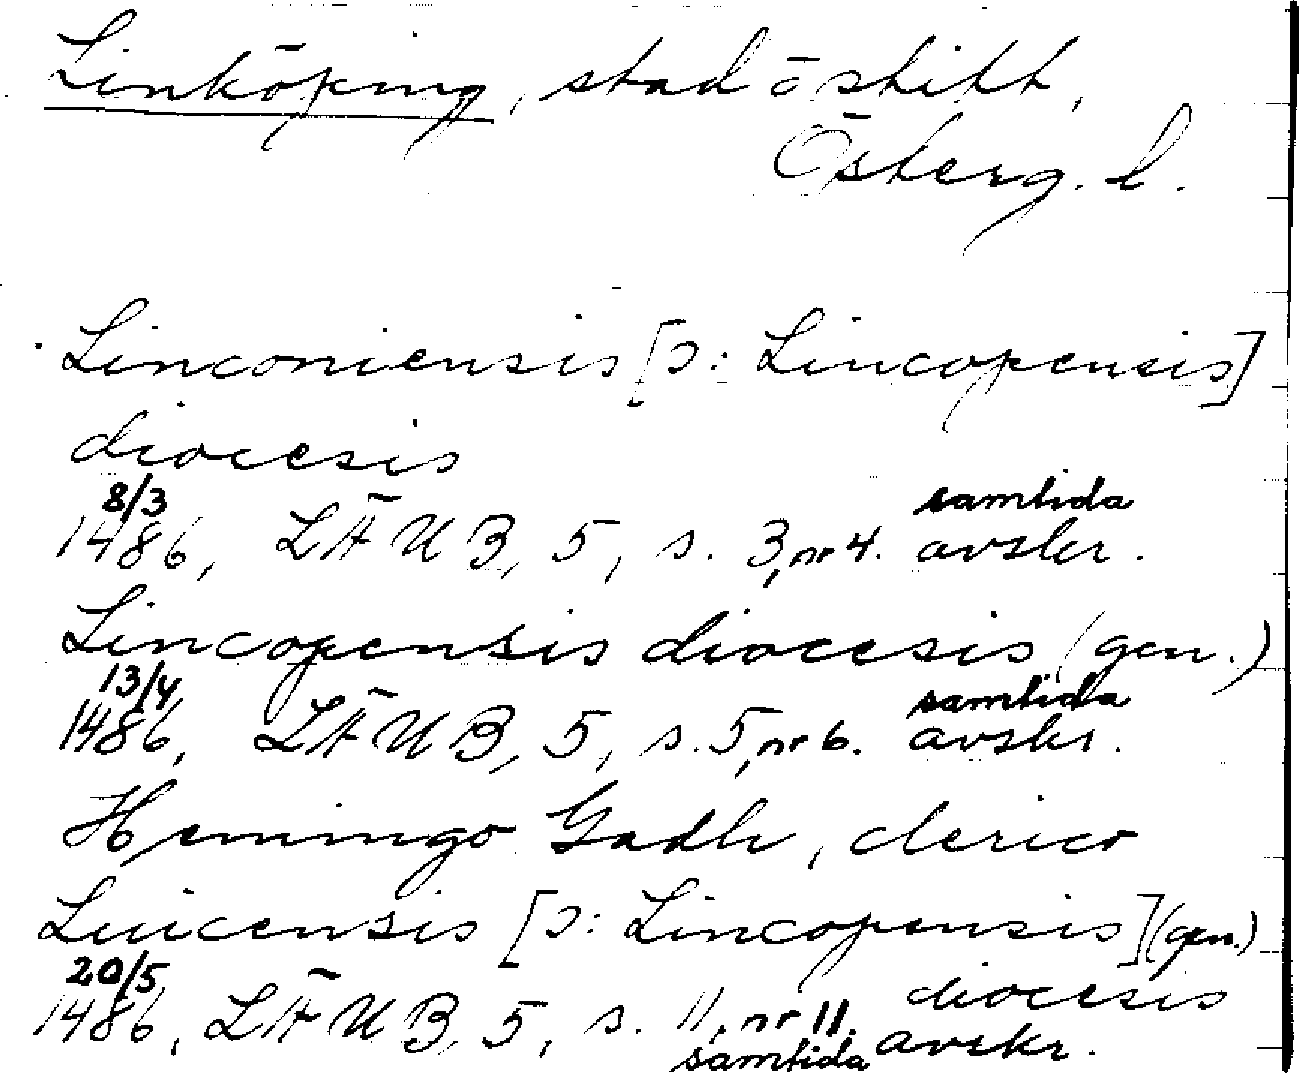 Linköping, stad o stift,
Österg. l.
Linconiensis [ɔ: Lincopensis]
diocesis
8/3 samtida
1486, LÄUB, 5, s. 3, nr 4. avskr.
Lincopensis diocesis (gen.)
13/4 samtida
1486, LÄUB, 5, s. 5, nr 6. avskr.
Hemingo Gadh, clerico
Luicensis [ɔ: Lincopensis] (gen.)
20/5 diocesis
1486, LÄUB, 5, s. 11, nr 11. avskr.
samtida